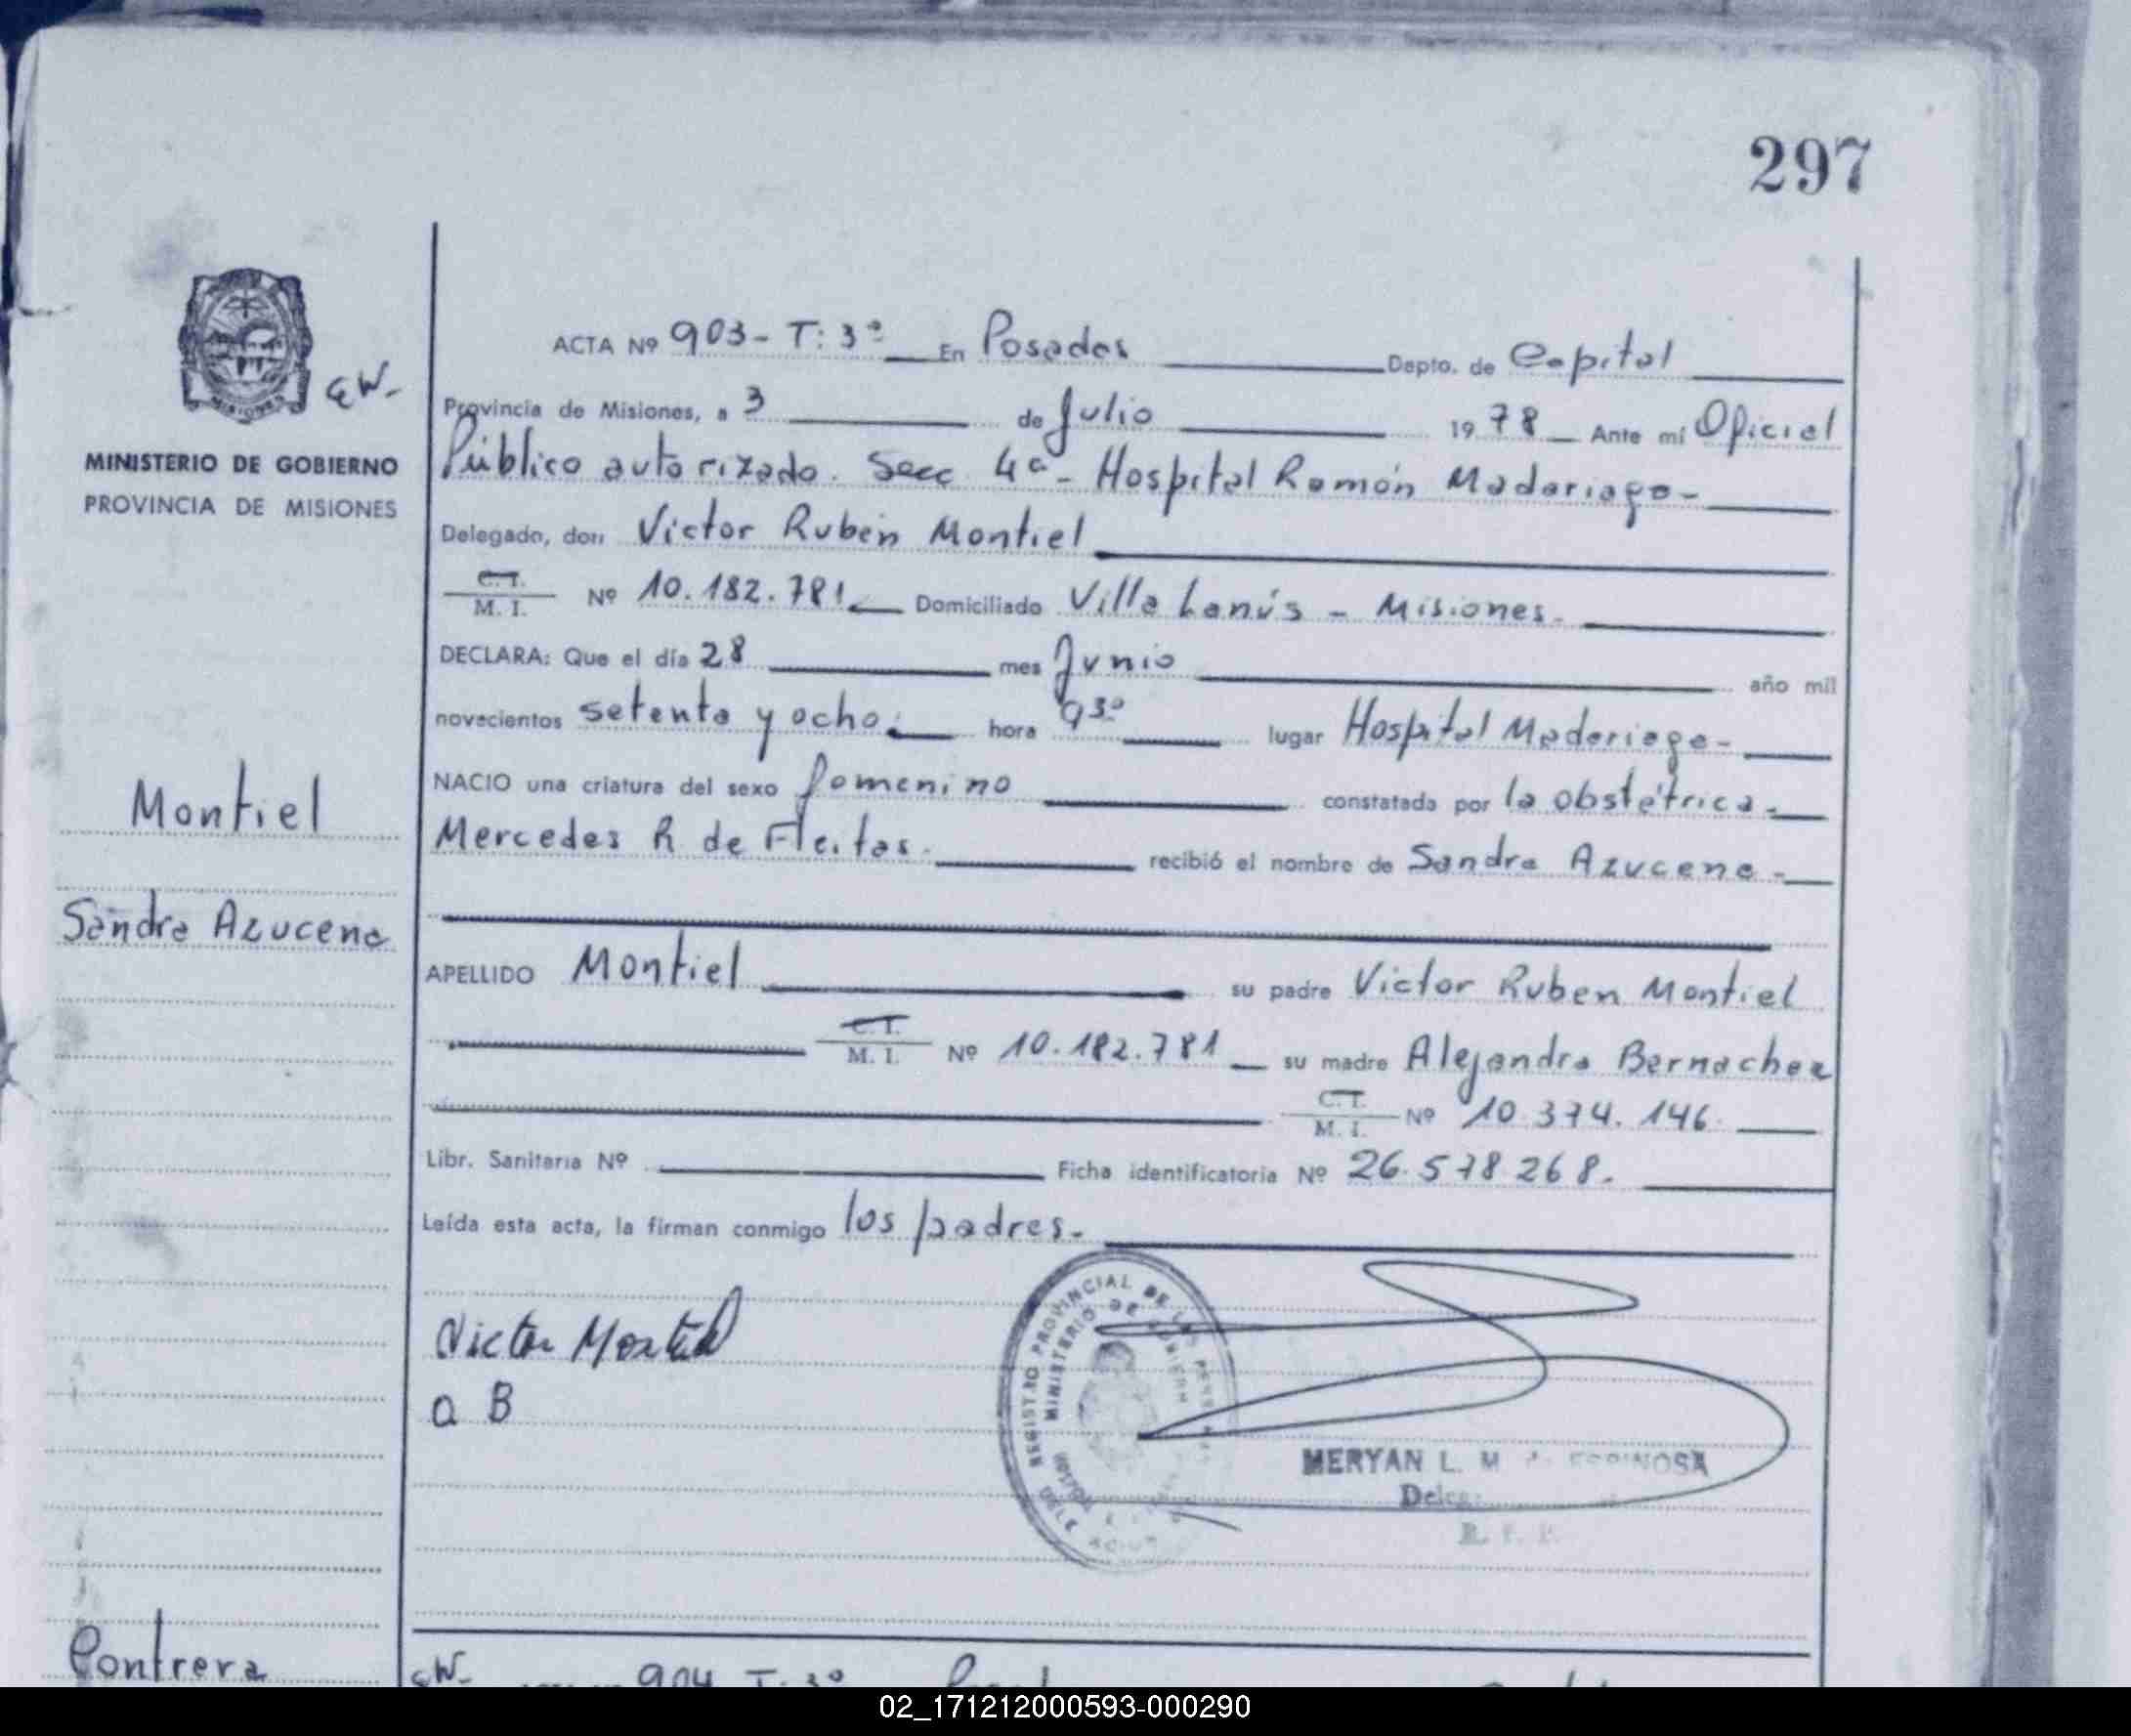 297
MISIONES
EW-
MINISTERIO DE GOBIERNO
PROVINCIA DE MISIONES
ACTA Nº 903- T: 3º En Posadas Depto. de Capital
Provincia de Misiones, a 3 de Julio 1978 Ante mí Oficial
Público autorizado. Secc 4ª - Hospital Ramón Madariaga-
Delegado, don Victor Rubén Montiel
C.I. M. I. Nº 10.182.781 Domiciliado Villa Lanús - Misiones.
DECLARA: Que el día 28 mes Junio año mil
novecientos setenta y ocho. hora 9 30 lugar Hospital Madariaga-
NACIO una criatura del sexo femenino constatada por la obstétrica-
Mercedes R de Fleitas. recibió el nombre de Sandra Azucena-
Montiel
Sandra Azucena
APELLIDO Montiel su padre Victor Ruben Montiel
C.I. M. I. Nº 10.182.781 su madre Alejandra
C.I. M. I. Nº 10.374.146.
Libr. Sanitaria Nº Ficha identificatoria Nº 26.578.268.
Leída esta acta, la firman conmigo los padres.
Victor Montiel
a B
REGISTRO PROVINCIAL DE LAS PERSONAS
MINISTERIO DE GOBIERNO
MERYAN L. M ESPINOSA
Contrera
EW-
904 T: 3º
02_171212000593-000290